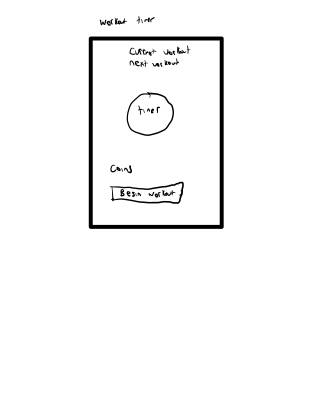 Workout timer
Current workout
next workout
timer
Coins
Begin workout